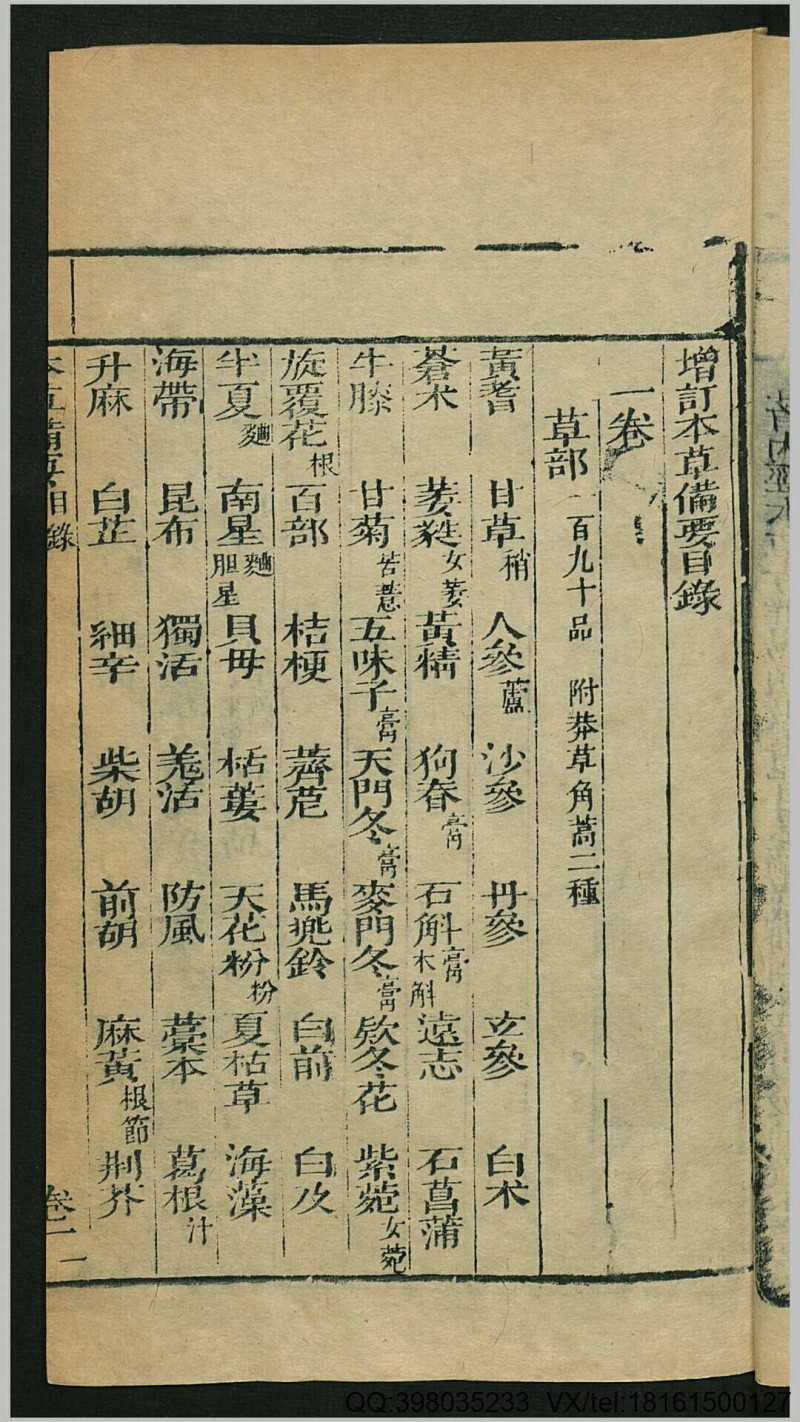 增訂本草備要目錄
一卷
草部 一百九十品 附莽草角蒿二種
黃耆 甘草稍 人參蘆 沙參 丹參 玄參 白术
蒼术 萎蕤女萎 黃精 狗脊膏 石斛膏木斛 遠志 石菖蒲
牛膝 甘菊苦薏 五味子膏 天門冬膏 麥門冬膏 欵冬花 紫菀女菀
旋覆花根 百部 桔梗 薺苨 馬兜鈴 白前 白及
半夏麯 南星麯胆星 貝母 栝蔞 天花粉粉 夏枯草 海藻
海帶 昆布 獨活 羌活 防風 藁本 葛根汁
升麻 白芷 細辛 柴胡 前胡 麻黃根節 荆芥
本草備要目錄 卷一 一
QQ:398035233 VX/tel:18161500127